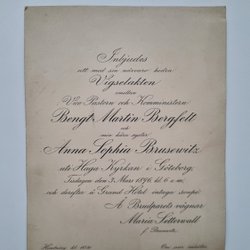 Inbjudes
att med sin närvaro hedra
Vigselakten
emellan
Vice Pastorn och Komministern
Bengt Martin Bergfelt
och
min kära syster
Anna Sophia Brusewitz
uti Haga Kyrkan i Göteborg,
Tisdagen den 3 Mars 1896, kl. 6 e.m.
och derefter å Grand Hôtel intaga soupé.
À Brudparets vägnar
Maria Setterwall
f. Brusewitz.